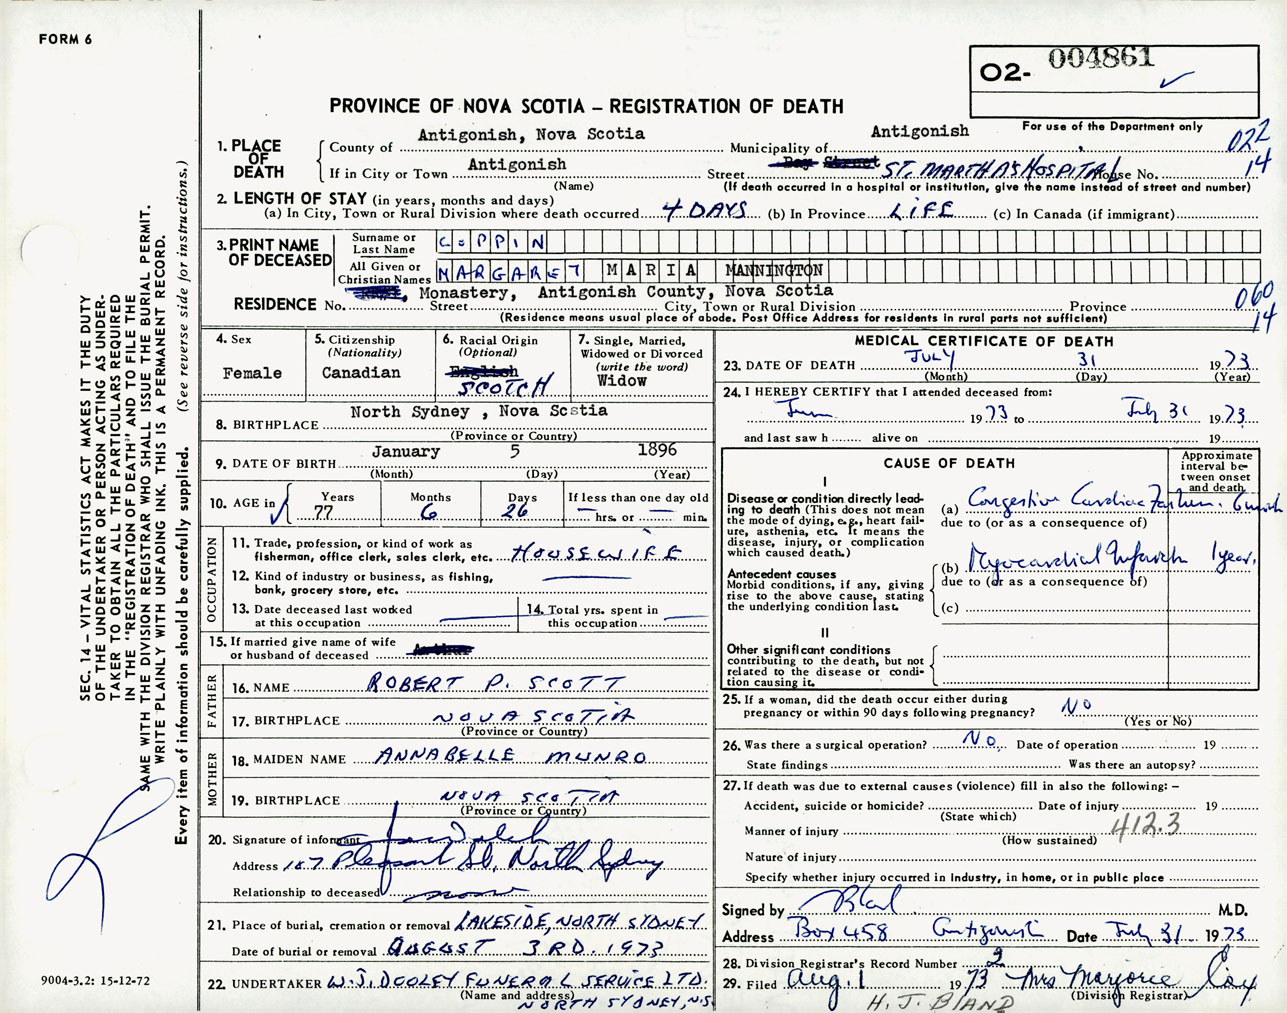 FORM 6
O2- 004861
PROVINCE OF NOVA SCOTIA – REGISTRATION OF DEATH
For use of the Department only
1. PLACE OF DEATH
County of Antigonish, Nova Scotia Municipality of Antigonish 022
If in City or Town Antigonish Street ST. MARTHA'S HOSPITAL House No. 14
(Name) (If death occurred in a hospital or institution, give the name instead of street and number)
2. LENGTH OF STAY (in years, months and days)
(a) In City, Town or Rural Division where death occurred 4 DAYS (b) In Province LIFE (c) In Canada (if immigrant)
3. PRINT NAME OF DECEASED
Surname or Last Name COPPIN
All Given or Christian Names MARGARET MARIA MANNINGTON
RESIDENCE No. , Monastery, Antigonish County, Nova Scotia 060
Street City, Town or Rural Division Province 14
(Residence means usual place of abode. Post Office Address for residents in rural parts not sufficient)
4. Sex Female
5. Citizenship (Nationality) Canadian
6. Racial Origin (Optional) English SCOTCH
7. Single, Married, Widowed or Divorced (write the word) Widow
8. BIRTHPLACE North Sydney , Nova Scstia
(Province or Country)
9. DATE OF BIRTH January 5 1896
(Month) (Day) (Year)
10. AGE in Years 77 Months 6 Days 26 If less than one day old
— hrs. or — min.
OCCUPATION
11. Trade, profession, or kind of work as fisherman, office clerk, sales clerk, etc. HOUSEWIFE
12. Kind of industry or business, as fishing, bank, grocery store, etc. —
13. Date deceased last worked at this occupation —
14. Total yrs. spent in this occupation —
15. If married give name of wife or husband of deceased Arthur
FATHER
16. NAME ROBERT P. SCOTT
17. BIRTHPLACE NOVA SCOTIA
(Province or Country)
MOTHER
18. MAIDEN NAME ANNABELLE MUNRO
19. BIRTHPLACE NOVA SCOTIA
(Province or Country)
20. Signature of informant
Address 187 Pleasant St, North Sydney
Relationship to deceased
21. Place of burial, cremation or removal LAKESIDE, NORTH SYDNEY
Date of burial or removal AUGUST 3RD. 1973
22. UNDERTAKER W.J. DOOLEY FUNERAL SERVICE LTD.
(Name and address) NORTH SYDNEY, N.S.
MEDICAL CERTIFICATE OF DEATH
23. DATE OF DEATH JULY 31 1973
(Month) (Day) (Year)
24. I HEREBY CERTIFY that I attended deceased from:
1973 to July 31 1973
and last saw h alive on 19
CAUSE OF DEATH
Approximate interval between onset and death
I
Disease or condition directly leading to death (This does not mean the mode of dying, e.g., heart failure, asthenia, etc. It means the disease, injury, or complication which caused death.)
(a) Congestive Cardiac Failure. 6 month
due to (or as a consequence of)
Antecedent causes
Morbid conditions, if any, giving rise to the above cause, stating the underlying condition last.
(b) Myocardial Infarct 1 year.
due to (or as a consequence of)
(c)
II
Other significant conditions
contributing to the death, but not related to the disease or condition causing it.
25. If a woman, did the death occur either during pregnancy or within 90 days following pregnancy? NO
(Yes or No)
26. Was there a surgical operation? NO. Date of operation 19
State findings Was there an autopsy?
27. If death was due to external causes (violence) fill in also the following: –
Accident, suicide or homicide? Date of injury 19
(State which)
Manner of injury 412.3
(How sustained)
Nature of injury
Specify whether injury occurred in industry, in home, or in public place
Signed by M.D.
Address Box 458 Antigonish Date July 31 1973
28. Division Registrar's Record Number 2
29. Filed Aug. 1 1973 Mrs Marjorie
(Division Registrar)
H. J. BLAND
SEC. 14 – VITAL STATISTICS ACT MAKES IT THE DUTY
OF THE UNDERTAKER OR PERSON ACTING AS UNDERTAKER TO OBTAIN ALL THE PARTICULARS REQUIRED
IN THE "REGISTRATION OF DEATH" AND TO FILE THE
SAME WITH THE DIVISION REGISTRAR WHO SHALL ISSUE THE BURIAL PERMIT.
WRITE PLAINLY WITH UNFADING INK. THIS IS A PERMANENT RECORD.
Every item of information should be carefully supplied. (See reverse side for instructions.)
9004-3.2: 15-12-72